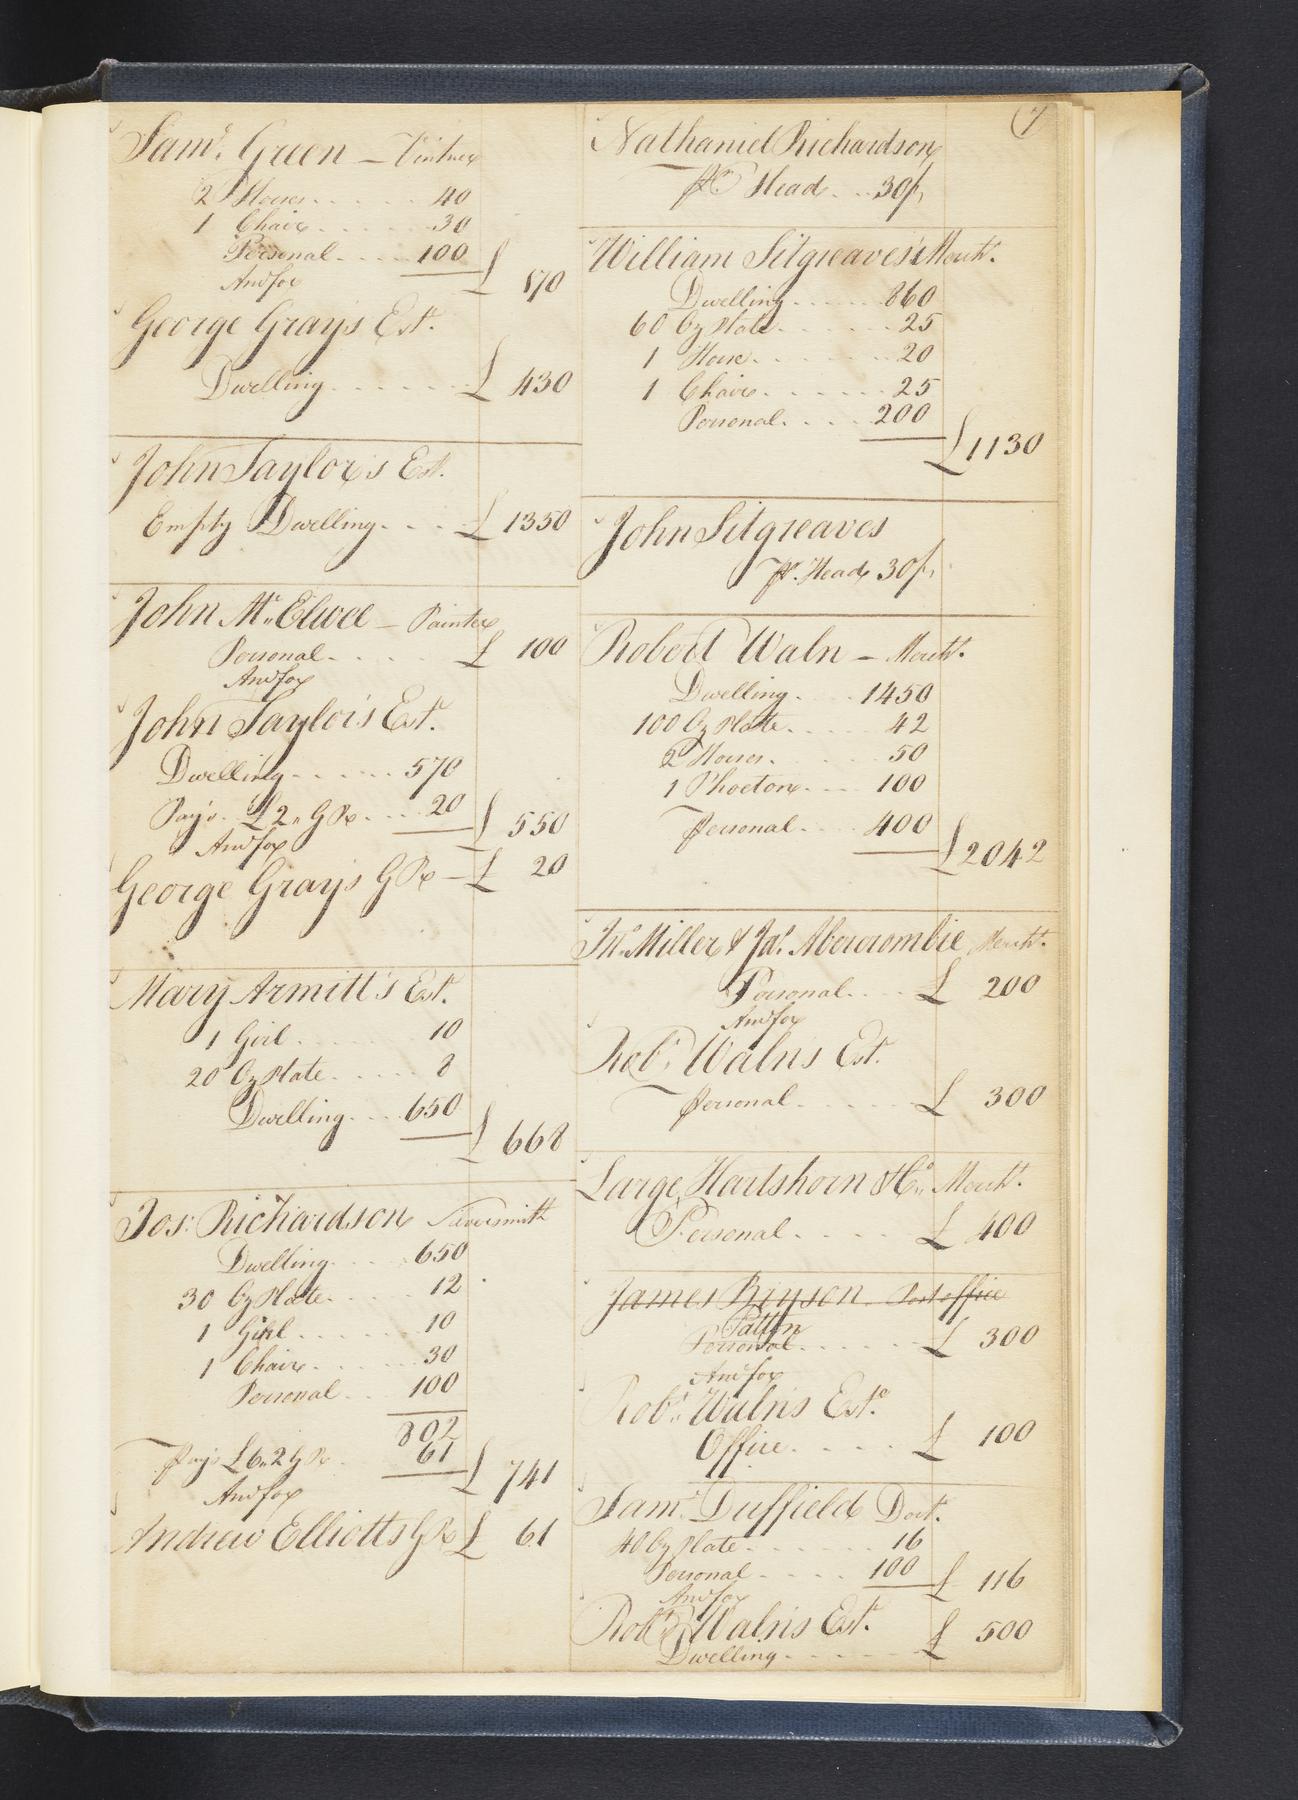 Sam.l Green – Vintner
2 Horses . . . . . . 40
1 Chair . . . . . . 30
Personal . . . . 100
£ 170
And for
George Gray's Est.
Dwelling . . . . . . £ 430
John Taylor's Est.
Empty Dwelling . . . £ 1350
John Mc. Elwee – Painter
Personal . . . . . £ 100
And for
John Taylor's Est.
Dwelling . . . . . . 570
Pay's £2,, G Rt . . . 20
£ 550
And for
George Gray's G Rt – £ 20
Mary Armitt's Est.
1 Girl . . . . . . 10
20 Oz Plate . . . . . 8
Dwelling . . . 650
£ 668
Jos: Richardson Silversmith
Dwelling . . . . 650
30 Oz Plate . . . . . 12
1 Girl . . . . . . 10
1 Chair . . . . . . 30
Personal . . . 100
802
Pays £6,,2 G Rt . 61
£ 741
And for
Andrew Elliotts G Rt £ 61
7
Nathaniel Richardson
pr Head . . . 30/,
William Sitgreaves's Mercht.
Dwelling . . . . . 860
60 Oz Plate . . . . . . 25
1 Horse . . . . . . . 20
1 Chair . . . . . . . 25
Personal . . . . 200
£1130
John Sitgreaves
pr. Head 30/,
Robert Waln – Mercht.
Dwelling . . . . 1450
100 Oz Plate . . . . . 42
2 Horses . . . . . . 50
1 Phaeton . . . 100
Personal . . . . 400
£2042
Jno. Miller & Jas. Abercrombie Mercht.
Personal . . . . £ 200
And for
Rob.t Walns Est.
Personal . . . . . . £ 300
Large Hartshorn & Co,, Mercht.
Personal . . . . . £ 400
James Bryson – Post office
Patton
Personal . . . . . . £ 300
And for
Rob.t Waln's Este
Office . . . . . £ 100
Sam.l Duffield Doct.
40 Oz Plate . . . . . . . 16
Personal . . . . . 100
£ 116
And for
Robt. Waln's Est.
£ 500
Dwelling . . . . . .